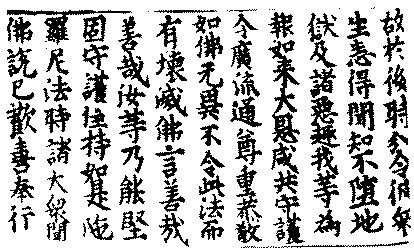 故於後時分令俱衆
生悉得聞知不墮地
獄及諸惡趣我等為
報如来大恩咸共守護
令廣流通尊重恭敬
如佛无異不令此法而
有壞滅佛言善哉
善哉汝等乃能堅
固守護住持如是陁
羅尼法時諸大衆聞
佛説已歡喜奉行